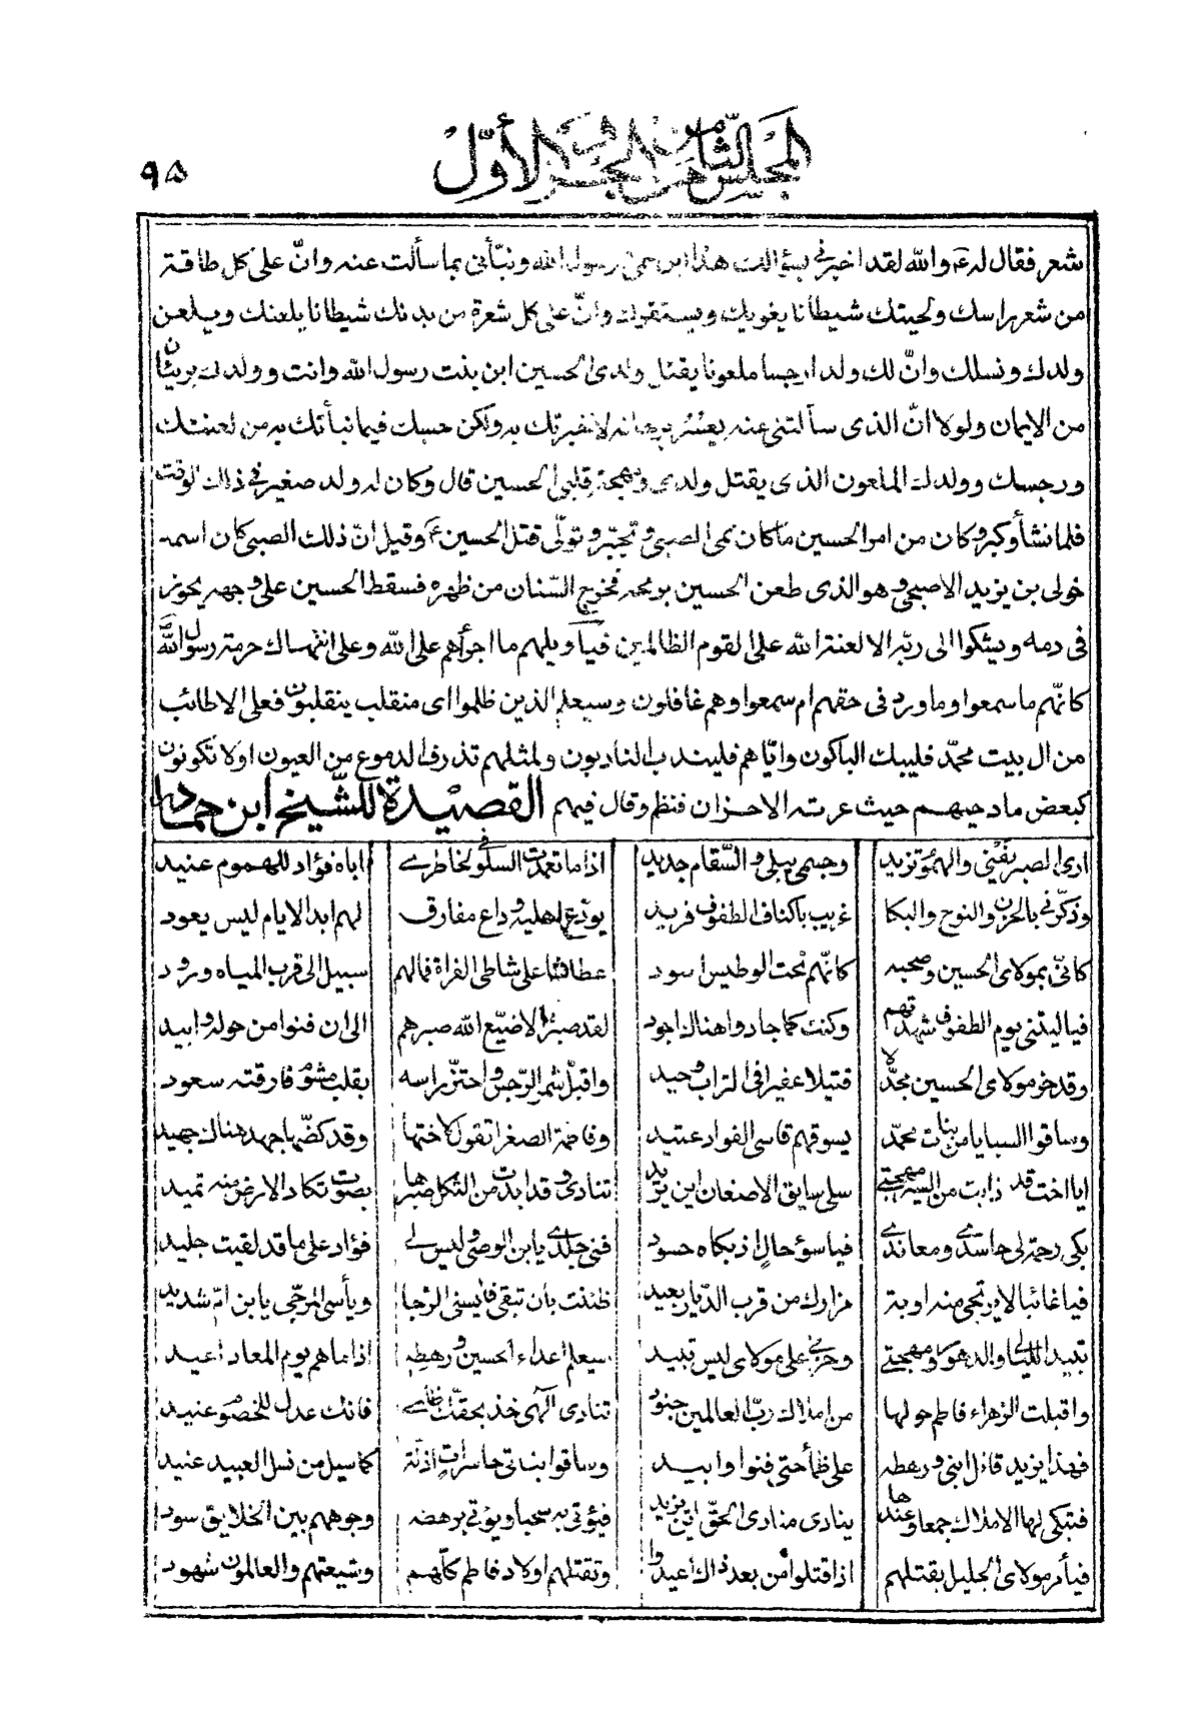 المجلس الثامن من الجزء الأوّل
٩٥
شعر فقال له ع والله لقد اخبرني بسؤالك هذا ابن عمي رسول الله ونبّأني بما سألت عنه وانّ على كل طاقة
من شعر راسك ولحيتك شيطانا يغويك ويستفزك وانّ على كل شعرة من بدنك شيطانا يلعنك ويلعن
ولدك ونسلك وانّ لك ولدا رجسا ملعونا يقتل ولدي الحسين ابن بنت رسول الله وانت وولدك بريئان
من الايمان ولولا انّ الذى سألتنى عنه يعسر برهانه لاخبرتك به ولكن حسبك فيما نبأتك به من لعنتك
ورجسك وولدك الملعون الذى يقتل ولدى ومهجة قلبي الحسين قال وكان له ولد صغير في ذلك الوقت
فلما نشأ وكبر وكان من امر الحسين ما كان نمى الصبي وتجبّر وتولّى قتل الحسين ع وقيل انّ ذلك الصبي كان اسمه
خولى بن يزيد الاصبحي وهو الذى طعن الحسين برمحه فخرج السّنان من ظهره فسقط الحسين على وجهه يخور
فى دمه ويشكوا الى ربّه الا لعنة الله على القوم الظالمين فيا ويلهم ما اجرأهم على الله وعلى انتهاك حرمة رسول الله
كانّهم ما سمعوا وما ورد فى حقهم ام سمعوا وهم غافلون وسيعلم الذين ظلموا اى منقلب ينقلبون فعلى الاطائب
من ال بيت محمّد فليبك الباكون وايّاهم فليندب النادبون ولمثلهم تذرف الدموع من العيون اولا تكونون
كبعض مادحيهم حيث عرته الاحزان فنظم وقال فيهم القصيدة للشيخ ابن حماد
ارى الصبر يفنى والهموم تزيد وجسمي يبلى والسّقام جديد اذا ما تعمدت السلو في لخاطري اباه فؤاد للهموم عنيد
وذكّرني بالحزن والنوح والبكا غريب باكناف الطفوف فريد يودّع اهليه وداع مفارق لهم ابد الايام ليس يعود
كانّي بمولاى الحسين وصحبه كانّهم تحت الوطيس اسود عطاشا على شاطى الفراة فما لهم سبيل الى قرب المياه ورود
فيا ليتنى يوم الطفوف شهدتهم وكنت كما جادوا هناك اجود لقد صبروا لا ضيّع الله صبرهم الى ان فنوا من حوله وابيد
وقد خر مولاى الحسين مجدّلا قتيلا عفيرا فى التراب وحيد واقبل شمر الرّجس واحتزّ راسه بقلب مشوم فارقته سعود
وساقوا السبايا من بنات محمّد يسوقهم قاسى الفواد عنيد وفاطمة الصغرا تقول لاختها وقد كضّها جهد هناك جهيد
ايا اخت قد ذابت من السير مهجتي سلى سايق الاضعان اين يريد تنادى وقد ابدت من الثكل صبرها بصوت تكاد الارض منه تميد
بكى رحمة لى حاسدي ومعاندي فيا سؤ حال اذ بكاه حسود فنى جلدي يا ابن الوصي وليس لي فؤاد على ما قد لقيت جليد
فيا غائبا لا يرتجى منه اوبة مزارك من قرب الدّيار بعيد ظننت بان تبقى فايسنى الرّجا ويأسى المرجّى يا بن امّ شديد
تبيد الليالي والدهور ومهجتي وحزني على مولاى ليس تبيد سيعلم اعداء الحسين ورهطه اذا ما هم يوم المعاد اعيد
واقبلت الزهراء فاطم حولها من املاك ربّ العالمين جنود تنادى الهى خذ بحقّك ظالمي فانك عدل للخصوم عنيد
فهذا يزيد قاتل ابنى ورهطه على ظمأ حتى فنوا وابيد وساقوا بناتى حاسرات اذلّة كما سيل من نسل العبيد عنيد
فتبكى لها الاملاك جمعا وعندها ينادى منادى الحقّ اين يزيد فيؤتى به سحبا ويؤتى برهطه وجوههم بين الخلايق سود
فيأمر مولاى الجليل بقتلهم اذا قتلوا من بعد ذاك اعيدوا وتقتلهم اولاد فاطم كلّهم وشيعتهم والعالمون شهود